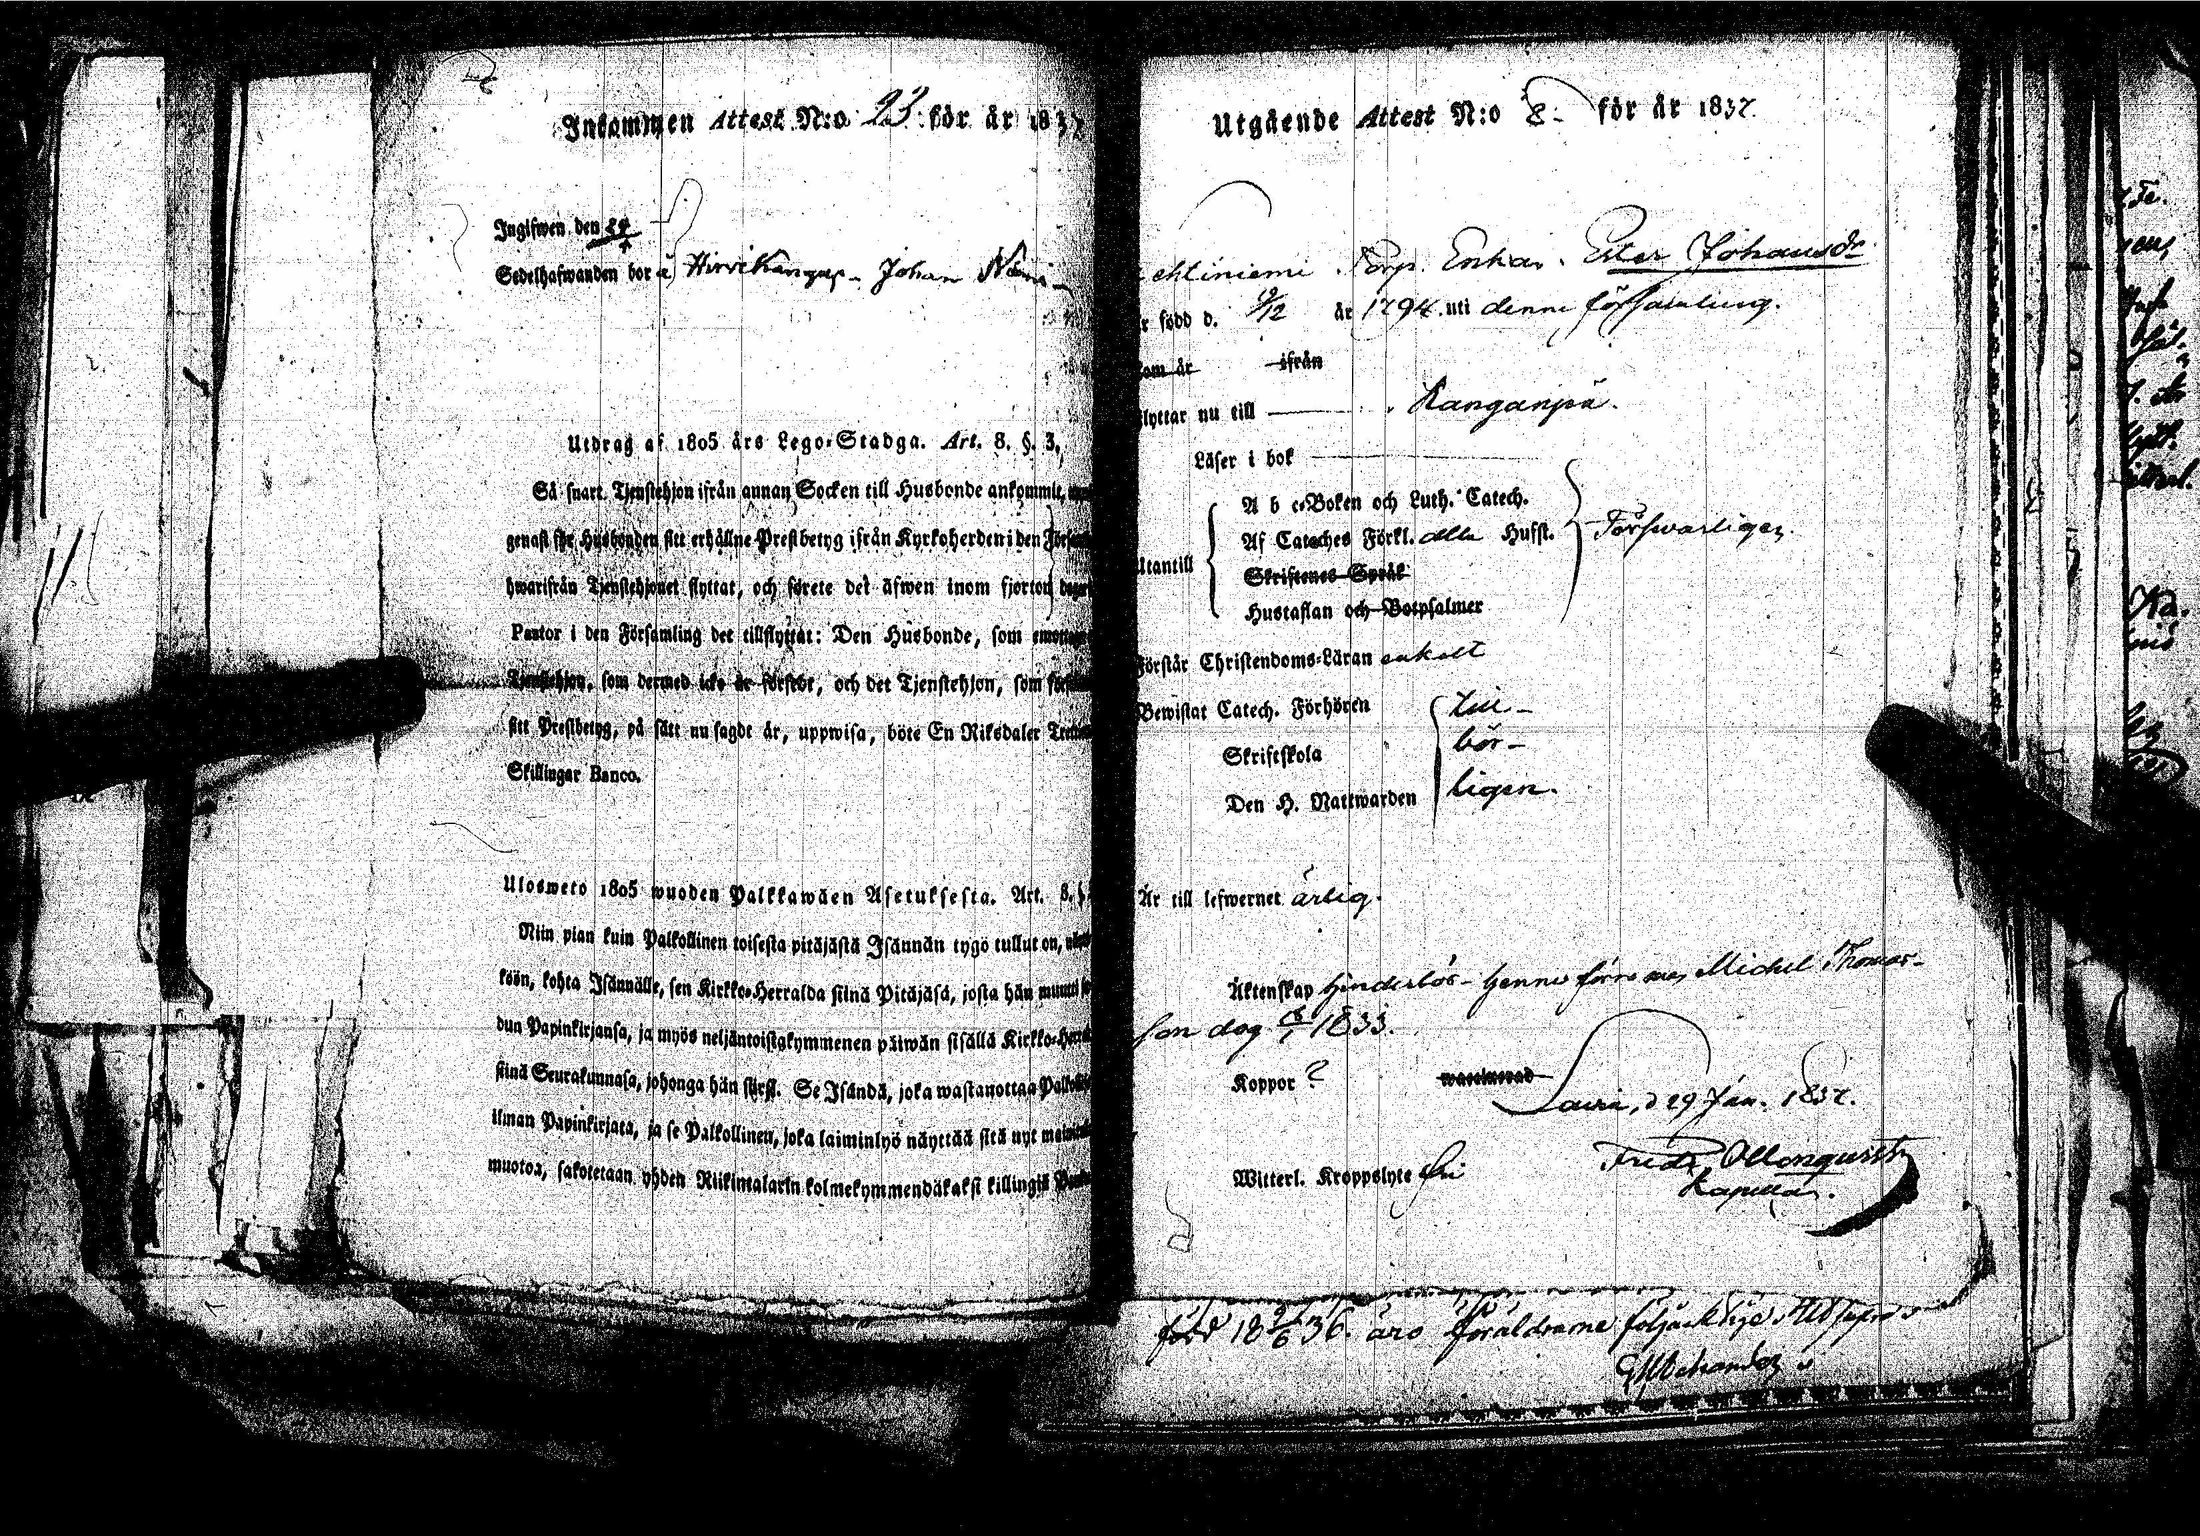 Inkommen Attest N:o 23 för år 183
Ingifwen den 24
Sedelhafwanden bor å Hirvikangas Johan
Utdrag af 1805 års Lego-Stadga. Art. 8. §. 3.
Så snart Tjenstehjon ifrån annan Socken till Husbonde ankommit,
genast för Husbonden sitt erhållne Prestbetyg ifrån Kyrkoherden i den
hwarifrån Tjenstehjonet flyttat, och förete det äfwen inom fjorton
Pastor i den Församling det tillflyttat: Den Husbonde, som
Tjenstehjon, som dermed icke är försedt, och det Tjenstehjon, som
sitt Prestbetyg, på sätt nu sagdt är, uppwisa, böte En Riksdaler
Skillingar Banco.
Ulosweto 1805 wuoden Palkkawäen Asetuksesta. Art. 8.
Niin pian kuin Palkollinen toisesta pitäjästä Isännän tygö tullut on,
köön, kohta Isännälle, sen Kirkko-Herralda siinä Pitäjäsä, josta hän
dun Papinkirjansa, ja myös neljäntoistakymmenen päiwän sisällä
siinä Seurakunnasa, johonga hän siirsi. Se Isändä, joka wastanottaa
ilman Papinkirjata, ja se Palkollinen, joka laiminlyö näyttää sitä nyt
muotoa, sakotetaan yhden Riikintalarin kolmekymmendäkaksi killingiä
Utgående Attest N:o 8 för år 1837.
Torp. Enkan Ester Johansdr
född d. 9/12 år 1794 uti denne församling.
ifrån
flyttar nu till Kanganpä.
Läser i bok
A b c-Boken och Luth. Catech.
Af Cateches Förkl. alla Hufst. Försvarligen.
Utantill
Skriftenes Språk
Hustaflan och Botpsalmer
Förstår Christendoms-Läran enkelt
Bewistat Catech. Förhören till-
Skriftskola bör-
Den H. Nattwarden ligen.
Är till lefwernet ärlig.
Äktenskap hinderlös. hennes förre man Michel Thomas-
son dog 1833.
Koppor ? waccinerad
Lavia, d 29 Jan. 1837.
Witterl. Kroppslyte fri
Fredr Ollonquist
Kapellan.
född 18 9/6 36. äro föräldrarne